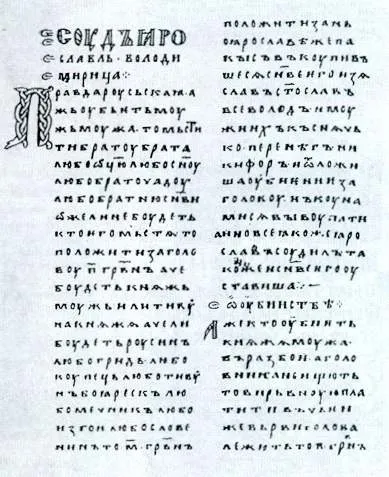 СОУДЪ ꙖРО
СЛАВЛЬ ВОЛОДИ
МИРИЦА:
Правда роусьскаꙗ. а
жь оубьѥть моу
жь моужа. то мьстити
ти братоу брата
любо ѡц҃ю любо сн҃оу
любо братоучадоу
любо братню сн҃ви
ѡже ли не боудеть
кто ѥго мьстѧ то
положити за голо
воу п҃ грвн҃ъ аче
боудеть кнѧжь
моужь или тивоу
на кнѧжа аче ли
боудеть роусинъ
любо гридь любо
коупець любо тивоу
нъ боꙗрескъ лю
бо мечникъ любо
изгои любо слове
нинъ то м҃ грвн҃ъ
положити за нь
по ꙗрославѣ же па
кы съвъкоупивъ
шесѧ сн҃ве ѥго изѧ
славъ ст҃ославъ
всеволодъ и моу
жи ихъ къснѧчь
ко перенѣгъ ни
кифоръ и ѿложи
ша оубиѥниѥ за
головоу нъ коуна
ми сѧ выкоупати
а ино все ꙗкоже ꙗро
славъ соудилъ та
коже и сн҃ве ѥго оу
ставиша:
ѡ оубииствѣ:
Аже кто оубиѥть
кнѧжѧ моужа
въ разбои а голо
вника не ищють
то вирьвноую пла
тити въ чьѥи
же вьрви голова
лежить то п҃ грвн҃ъ